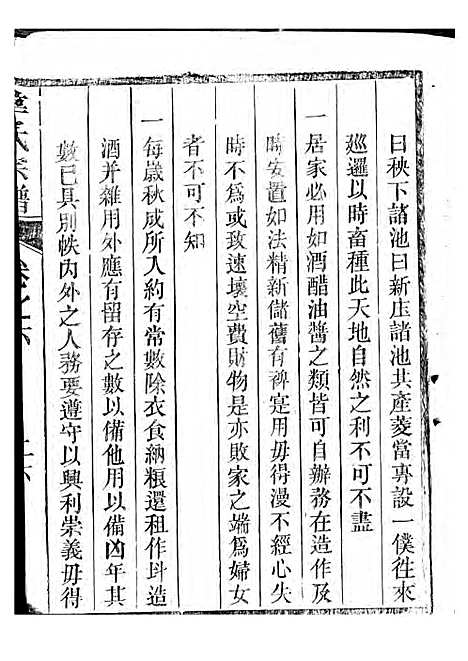 曰秧下諸池曰新庄諸池共產菱當專設一僕徃來
廵邏以時畜種此天地自然之利不可不盡
一居家必用如酒醋油醬之類皆可自辦務在造作及
時安置如法精新儲舊有裨寔用毋得漫不經心失
時不爲或致速壞空費財物是亦敗家之端爲婦女
者不可不知
一每歲秋成所入約有常數除衣食納粮還租作斗造
酒并雜用外應有留存之數以備他用以備凶年其
數已具別帙內外之人務要遵守以興利崇義毋得
氏宗譜
卷之六